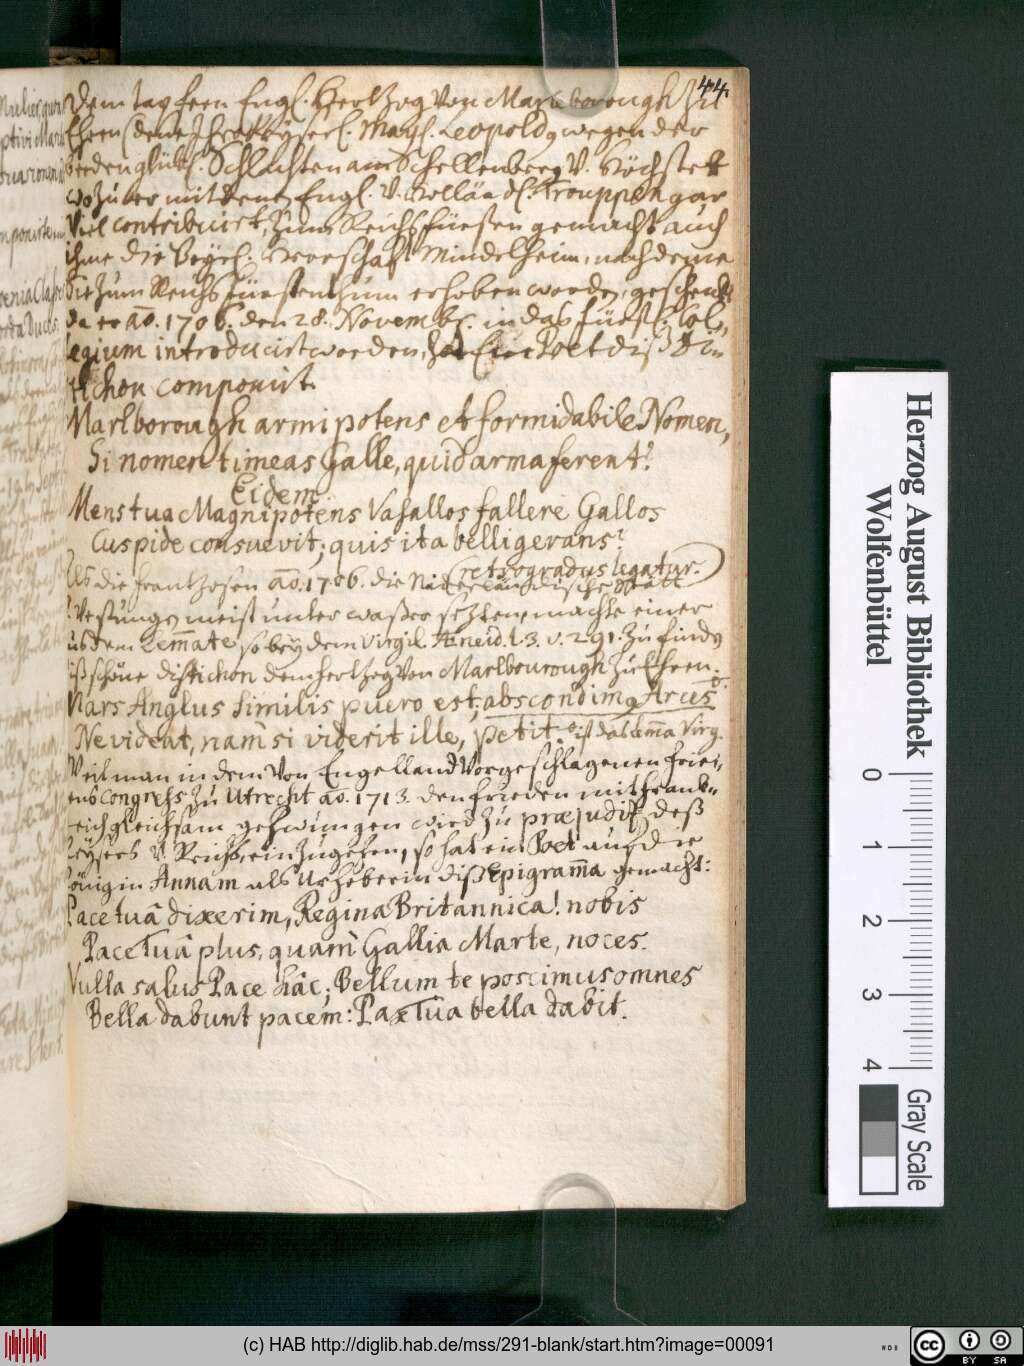 44.
Dem tapfern Engl. Hertzog Von Marleborough zu
Ehren (denn Ihro Käyserl. Mayst. Leopold wegen der
beeden glükl. Schlachten am Schellenberg v. Höchstett
wozu er mit denen Engl. v. Hollä nd. Trouppen gar
Viel contribuirt, zum Reichs fürsten gemacht auch
ihme die Bayerl. Herrschaft Mindelheim, nachdeme
Sie zum Reichs fürstenthum erhoben worden, geschenkt
da er ao. 1706. den 28. Novembr. in das fürstl. Col-
legium introducirt worden, hat Ein Poet diß Di-
stichon componirt.
Marlborough armipotens et formidabile Nomen,
Si nomen timeas Galle, quid arma ferent?
Eidem
Menstua Magnipotens Vasallos fallere Gallos
Cuspide consuevit; quis ita belligerans?
(retrogradus legatur.)
Als die Frantzosen ao. 1706. die Niederländische Stätt
v. Vestungen meist unter waßer setzten, machte einer
aus dem Lemmate so bey dem Virgil. Æneid. l. 3. v. 291. zu finden
diß schöne distichon dem Hertzog von Marlbourough zu Ehren.
Mars Anglus similis puero est; abscondimus Arces
Ne videat, nam si viderit ille, petit. ist das Lemma Virg.
Weil man in dem Von Engelland Vorgeschlagenen frie-
dens Congress zu Utrecht ao. 1713. den frieden mit frank-
reich gleichsam gezwungen wird zu præjudiz deß
Keysers v. Reichs, einzugehen, so hat ein Poet auf die
Königin Annam als Urheberin diß Epigramma gemacht:
Pace tuâ dixerim, Regina Britannica! nobis
Pace Tuâ plus, quam Gallia Marte, noces.
Nulla salus Pace hâc; Bellum te poscimus omnes
Bella dabunt pacem: Pax Tua bella dabit.
Herzog August Bibliothek
Wolfenbüttel
0
1
2
3
4
Gray Scale
(c) HAB http://diglib.hab.de/mss/291-blank/start.htm?image=00091
WDB
cc
BY SA